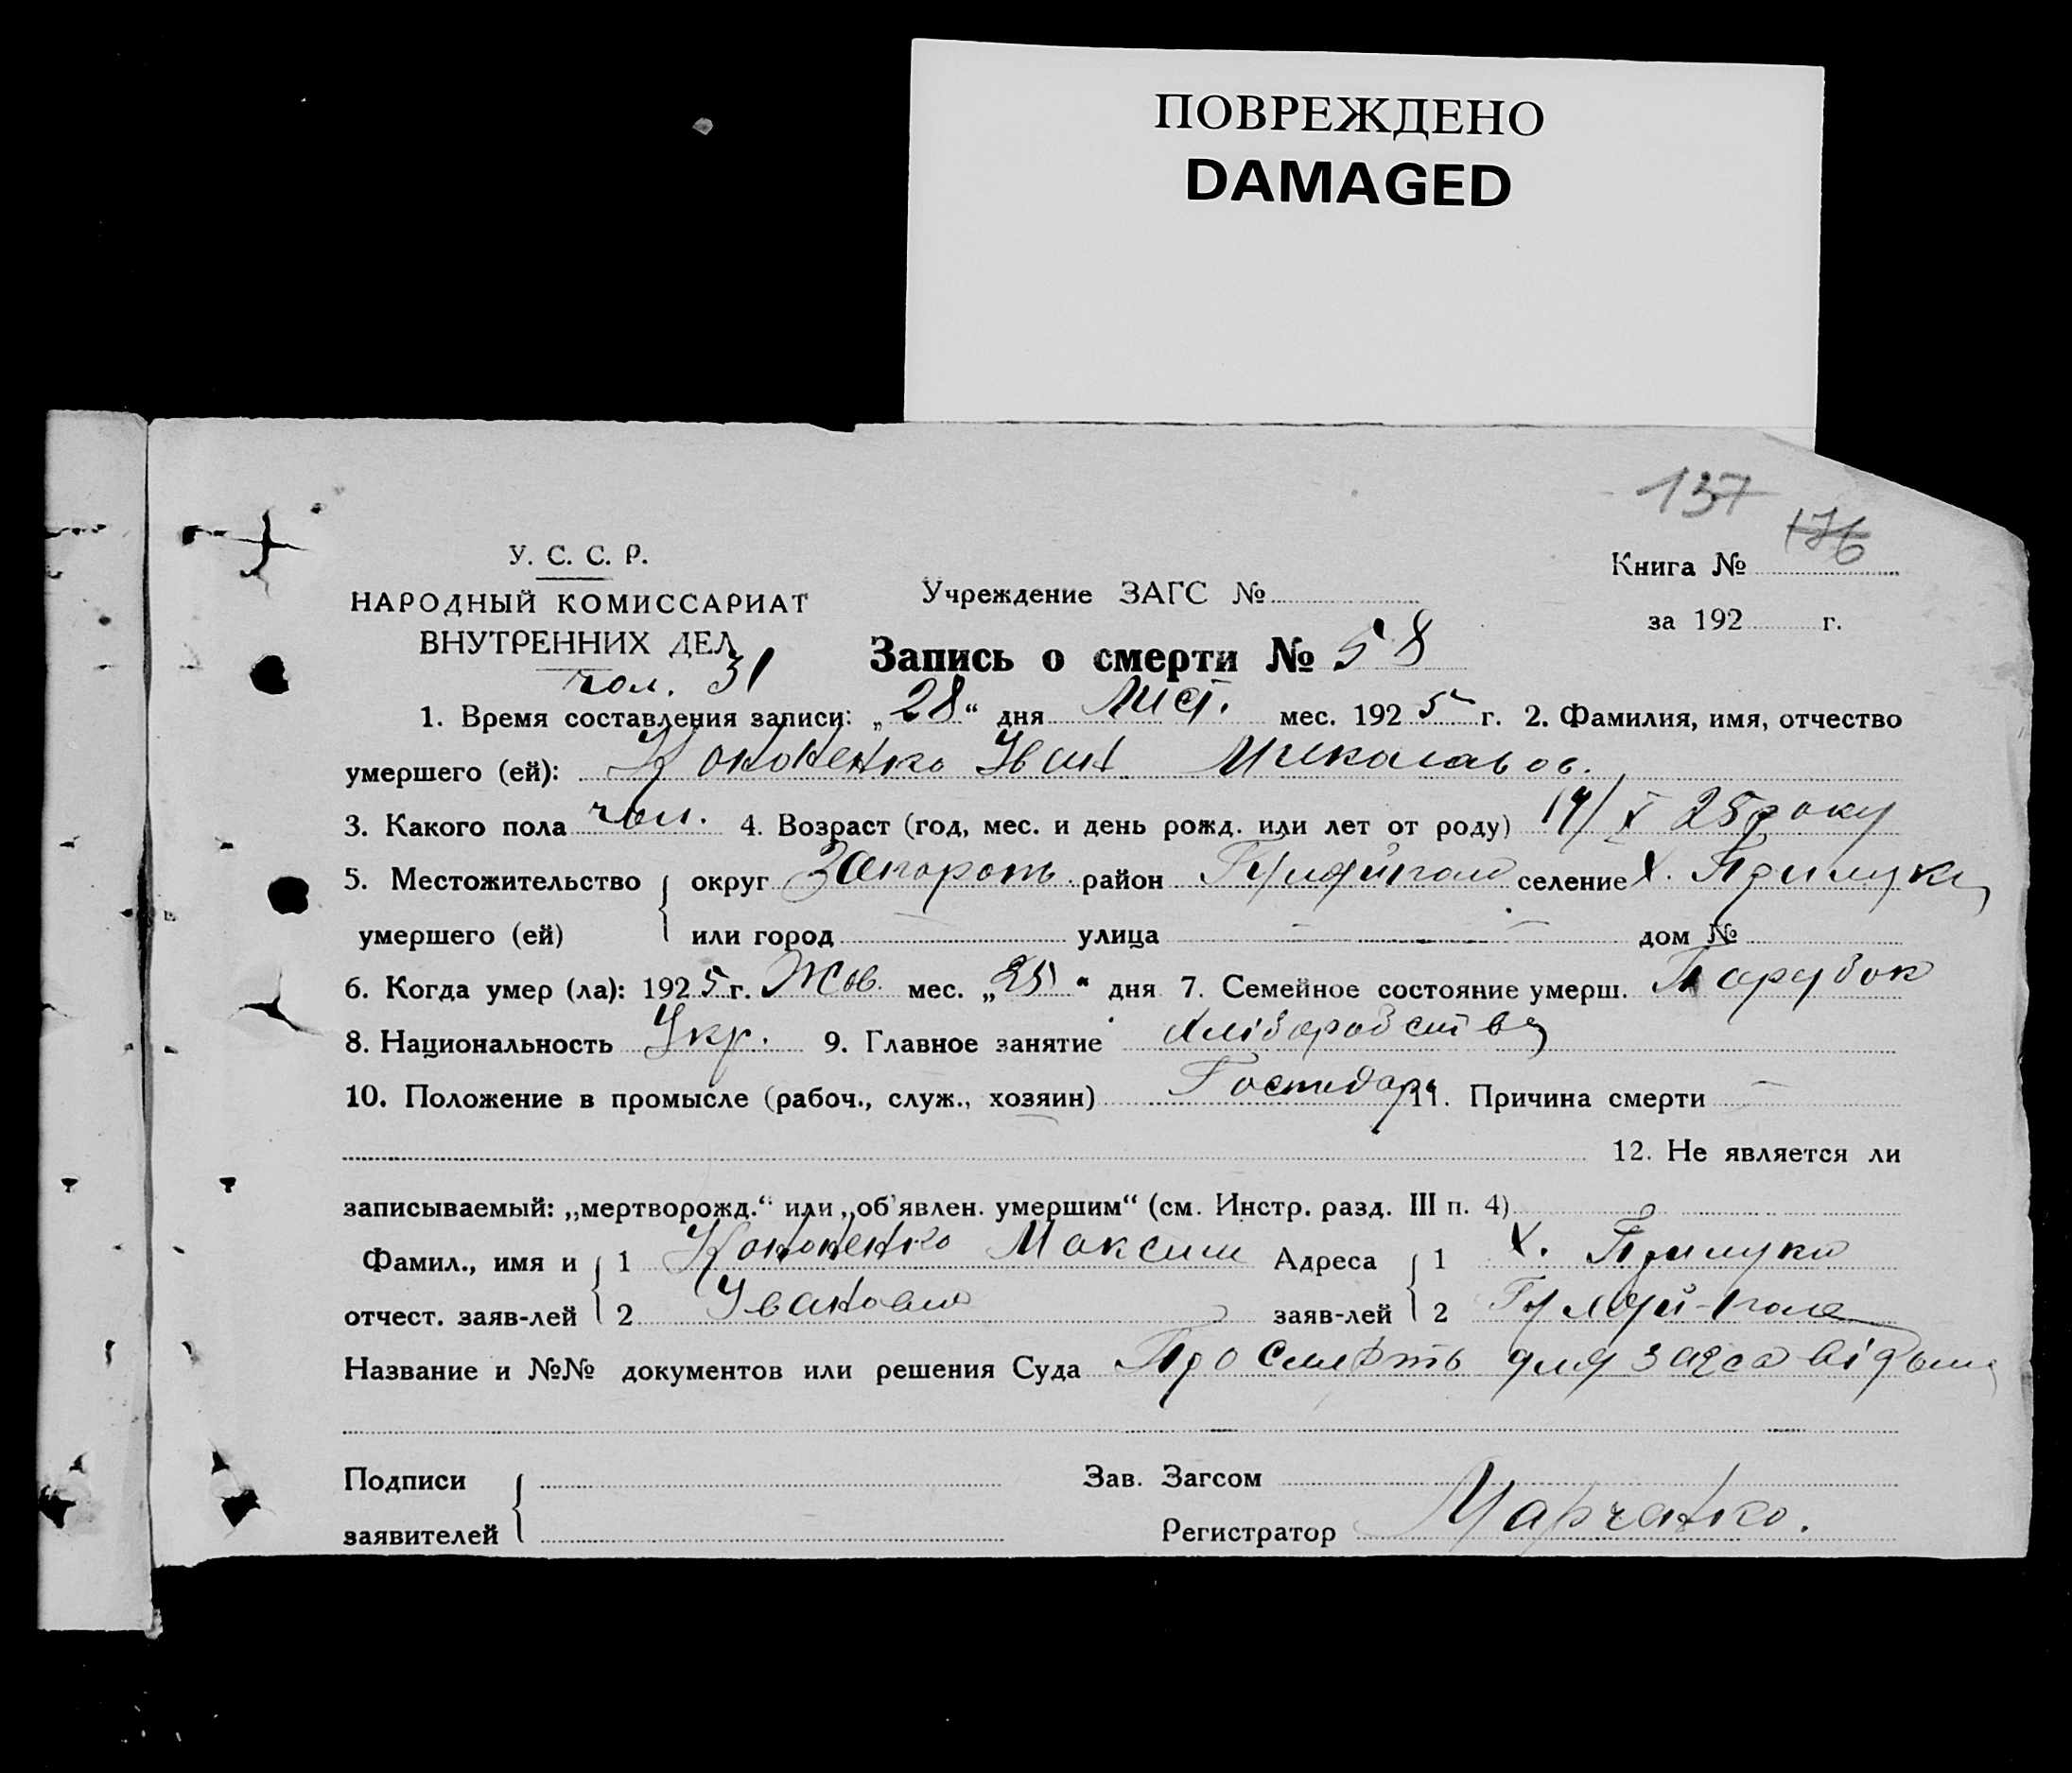 ПОВРЕЖДЕНО
DAMAGED
137
176
У. С. С. Р.
НАРОДНЫЙ КОМИССАРИАТ
ВНУТРЕННИХ ДЕЛ
чол. 31
Учреждение ЗАГС №
Книга №
за 192 г.
Запись о смерти № 58
1. Время составления записи: „28“ дня Лист. мес. 1925 г. 2. Фамилия, имя, отчество
умершего (ей): Кононенко Іван Миколаєв
3. Какого пола чол. 4. Возраст (год, мес. и день рожд. или лет от роду) 14/X 25 року
5. Местожительство округ Запорож. район Гуляйполе селение х. Прилуки
умершего (ей) или город — улица — дом №
6. Когда умер (ла): 1925 г. Жов. мес. „25“ дня 7. Семейное состояние умерш. Парубок
8. Национальность Укр. 9. Главное занятие Хліборобство
10. Положение в промысле (рабоч., служ., хозяин) Господар 11. Причина смерти —
12. Не является ли
записываемый: „мертворожд.“ или „об'явлен. умершим“ (см. Инстр. разд. III п. 4)
Фамил., имя и 1 Кононенко Максим Адреса 1 х. Прилуки
отчест. заяв-лей 2 Іванович заяв-лей 2 Гуляй-Поле
Название и №№ документов или решения Суда Про смерть для загса
Подписи Зав. Загсом
заявителей Регистратор Марченко.